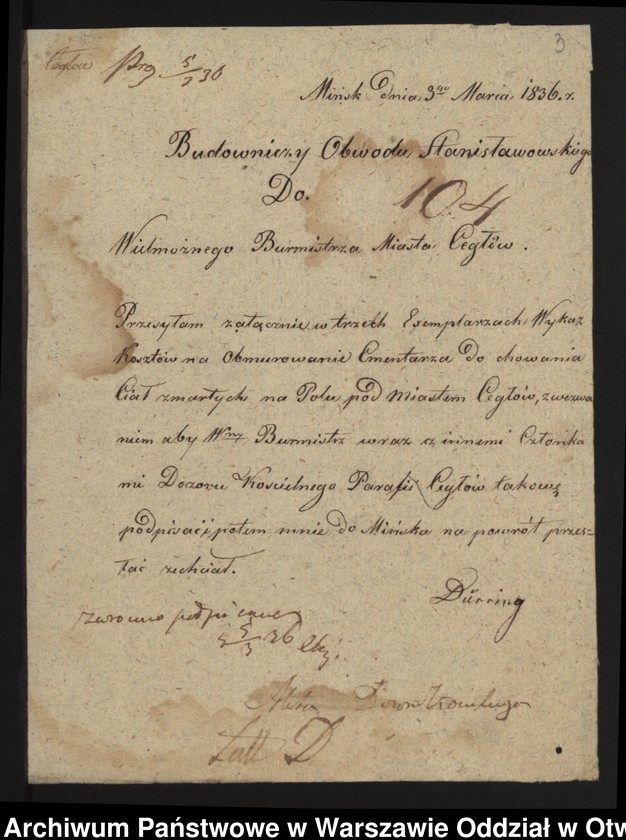 3
Cegłów Prz 5/3 36
Mińsk dnia 3go Marca 1836. r.
Budowniczy Obwodu Stanisławowskiego
Do.
104
Wielmożnego Burmistrza Miasta Cegłów.
Przesyłam załącznie w trzech Exemplarzach Wykaz
Kosztów na Obmurowanie Cmentarza do chowania
Ciał zmarłych na Polu pod Miastem Cegłów, z wezwa
niem aby Wny Burmistrz wraz z innemi Członka
mi Dozoru Kościelnego Parafii Cegłów takowe
podpisać i potem mnie do Mińska na powrót przes=
łać zechciał.
Dürring
zwrócono podpisane
5/3 36
Akta Dozoru Kościelnego
D
Archiwum Państwowe w Warszawie Oddział w Otw